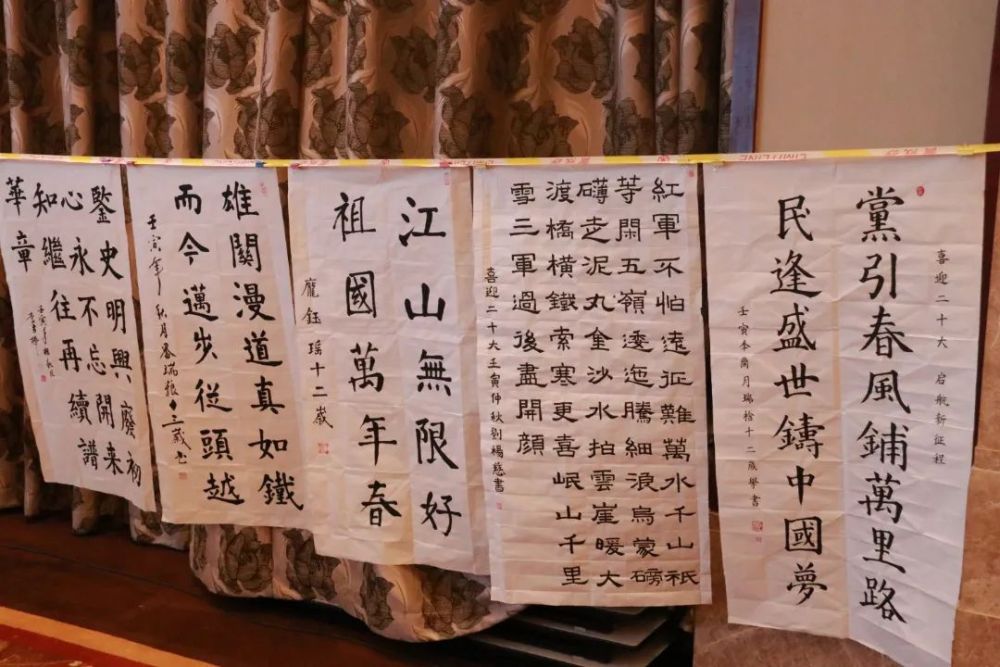 喜迎二十大 启航新征程
黨引春風鋪萬里路
民逢盛世鑄中國夢
壬寅季商月瑞 十二歲學書
紅軍不怕遠征難萬水千山衹
等閑五嶺逶迤騰細浪烏蒙磅
礴走泥丸金沙水拍雲崖暖大
渡橋橫鐵索寒更喜岷山千里
雪三軍過後盡開顏
喜迎二十大壬寅仲秋劉楊慈書
江山無限好
祖國萬年春
龐鈺瑶十二歲
雄關漫道真如鐵
而今邁步從頭越
壬寅年秋月
鋻史明興廢初
心永不忘開來
知繼往再續譜
華章
壬寅年